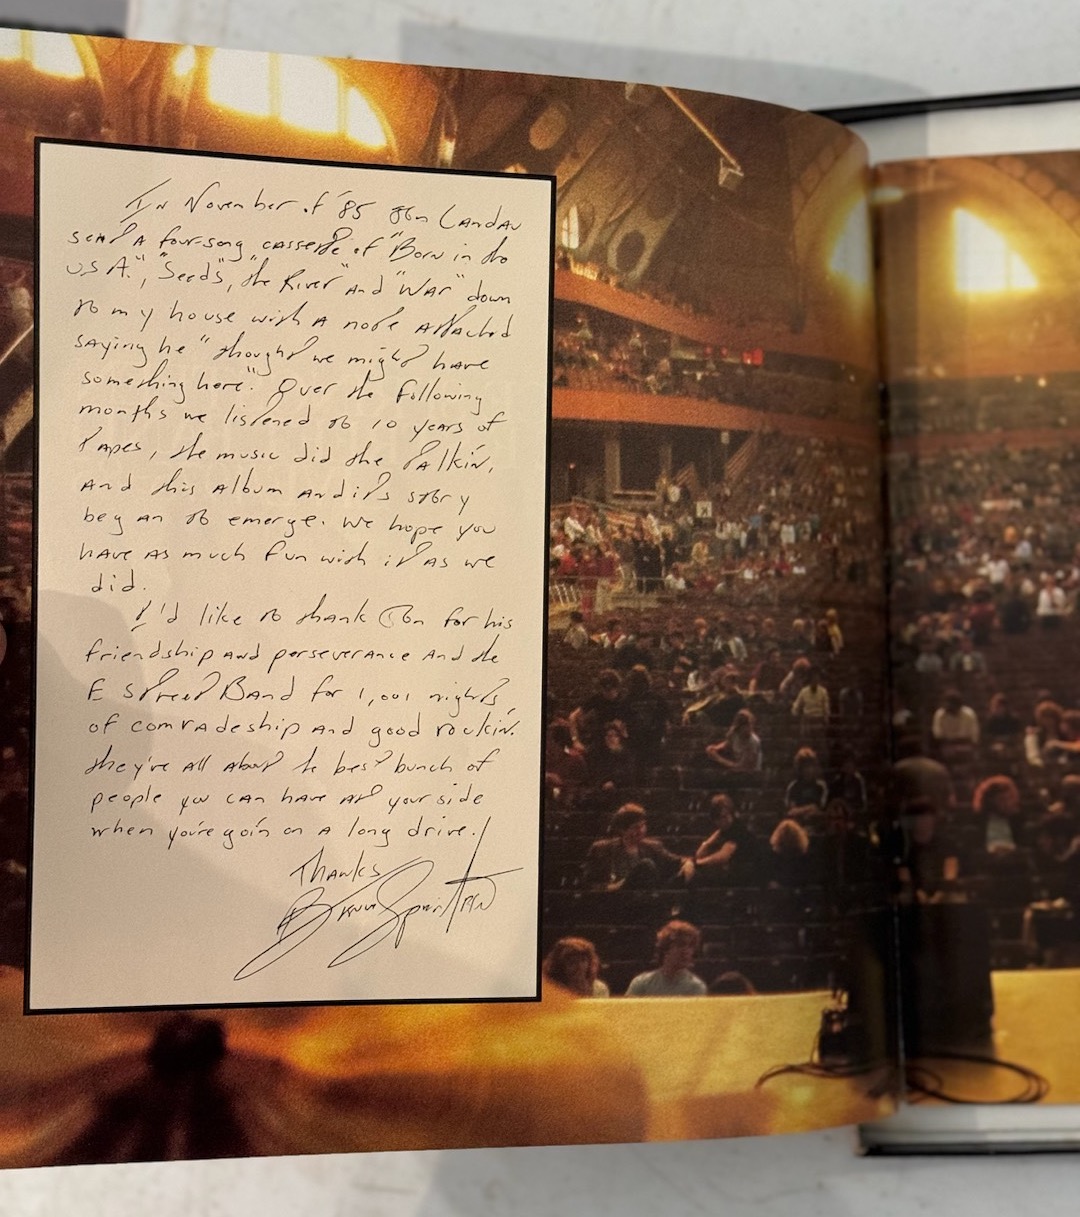 In November of '85 Jon Landau
sent a four-song cassette of "Born in the
U.S.A.", "Seeds", "the River" and "War" down
to my house with a note attached
saying he "thought we might have
something here". Over the following
months we listened to 10 years of
tapes, the music did the talkin',
and this album and it's story
began to emerge. We hope you
have as much fun with it as we
did.
I'd like to thank Jon for his
friendship and perseverance and the
E Street Band for 1,001 nights
of comradeship and good rockin'.
they're all about the best bunch of
people you can have at your side
when you're goin' on a long drive.
Thanks
Bruce Springsteen